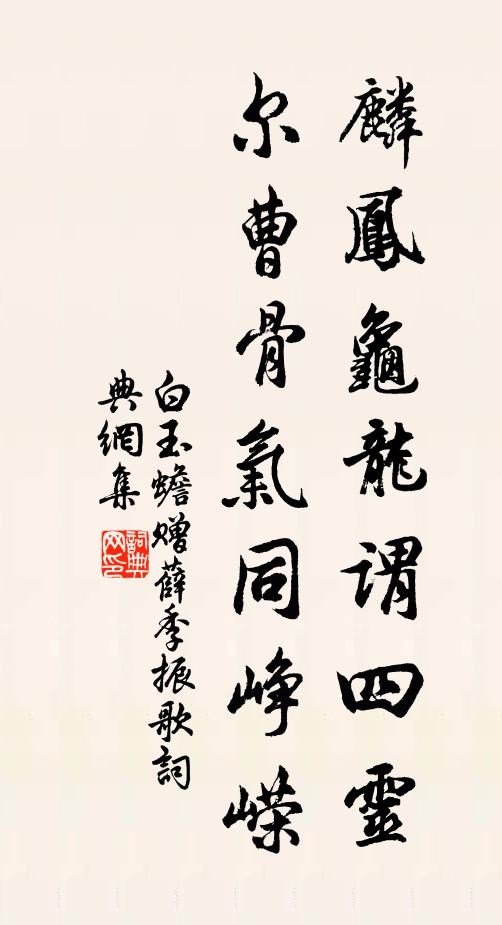 麟鳳龜龍谓四靈
尔曹骨氣同峥嵘
白玉蟾赠薛季振歌詞
典網集
詞典
网印